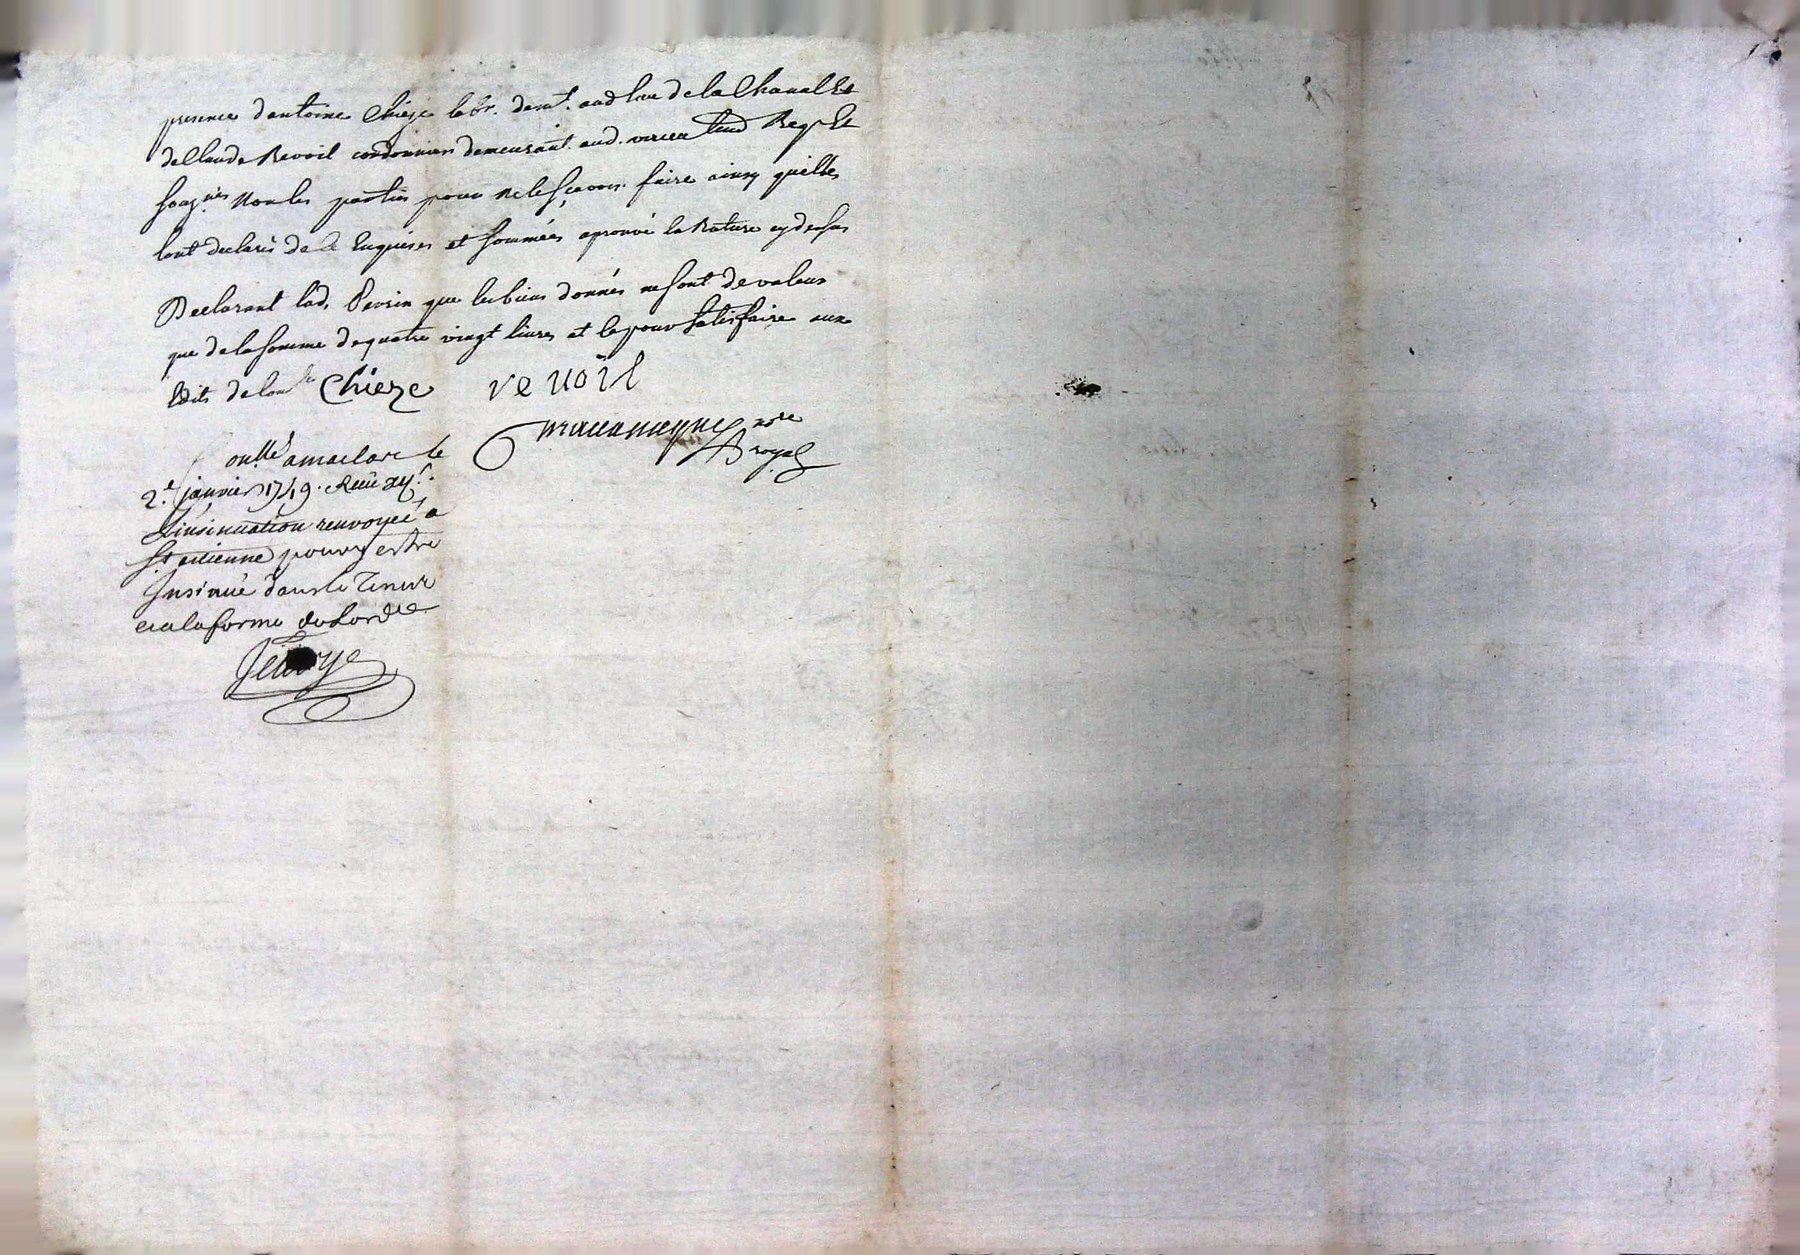 presence d'antoine Chieze labr. demt. aud lieu de la Chaval Et
de Claude Revoil cordonnier demeurant. aud. Reqr Et
soug.nés Non les parties pour ne le sçavoir faire ainsy quelles
lont declaré de ce Enquises et sommées aprouvé la Rature cy dessus
Declarant lad. Perrin que les biens donnés ne sont de valeur
que de la somme de quatre vingt livres et le pour satisfaire aux
Edits de Chieze revoil
nore
royal
Conllé a maclare le
2.e janvier 1749. Reçu
L'insinuation renvoyée a
St etienne pour y estre
Insinué dans le Tems
et a la forme de Lordce